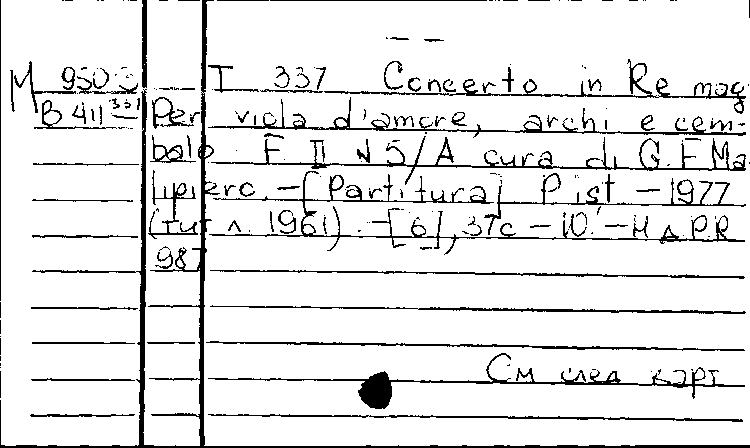 — —
М 950-3 Т 337 Concerto in Re mag
В 411 337 Per viola d'amore, archi e cem-
balo F II N 5/A cura di G. F Ma
lipiero. –[Partitura] P ist – 1977
(тит л 1961). –[6], 37с – 10.' – Н Д P. R
987
См след карт